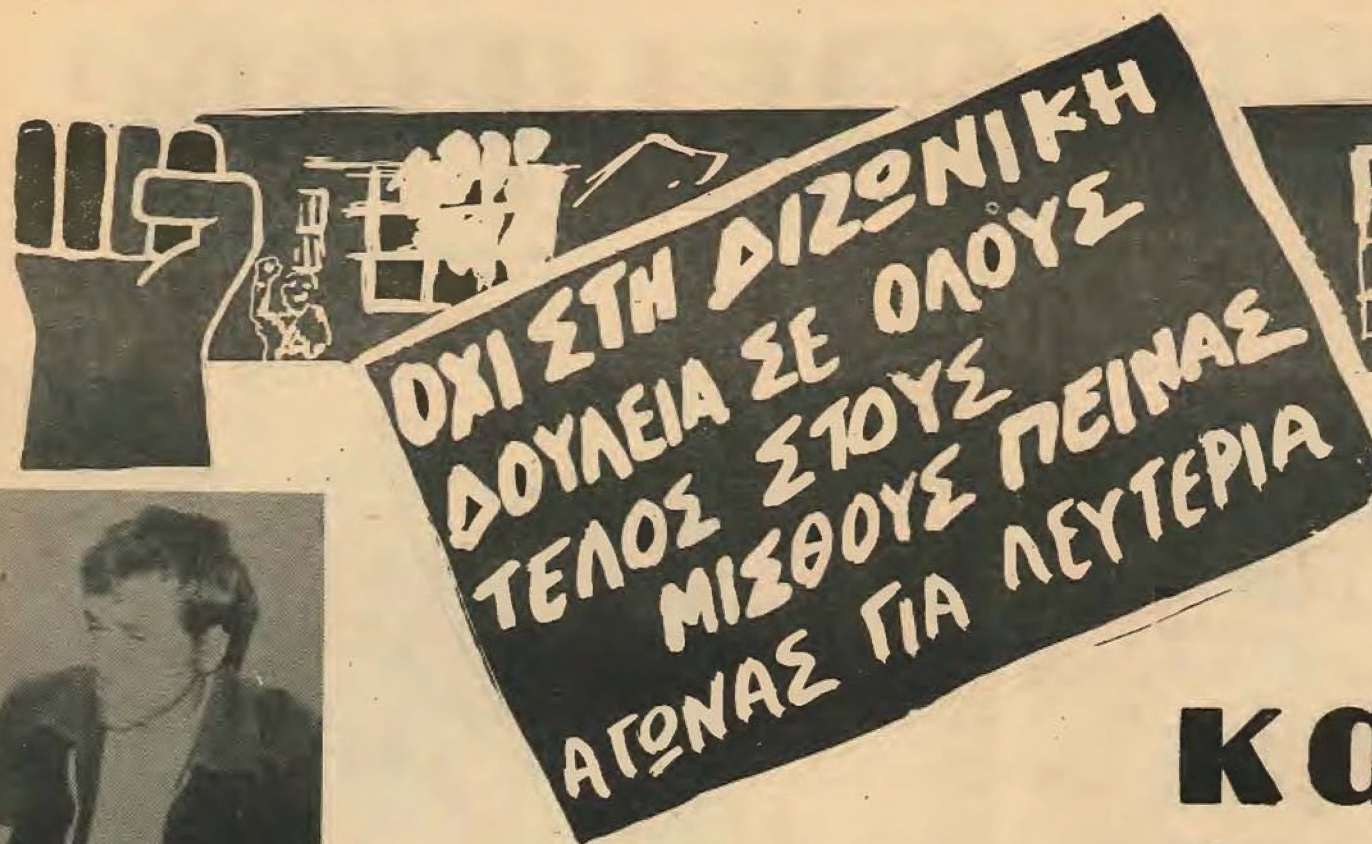 ΟΧΙ ΣΤΗ ΔΙΖΩΝΙΚΗ
ΔΟΥΛΕΙΑ ΣΕ ΟΛΟΥΣ
ΤΕΛΟΣ ΣΤΟΥΣ
ΜΙΣΘΟΥΣ ΠΕΙΝΑΣ
ΑΓΩΝΑΣ ΓΙΑ ΛΕΥΤΕΡΙΑ
ΚΟ